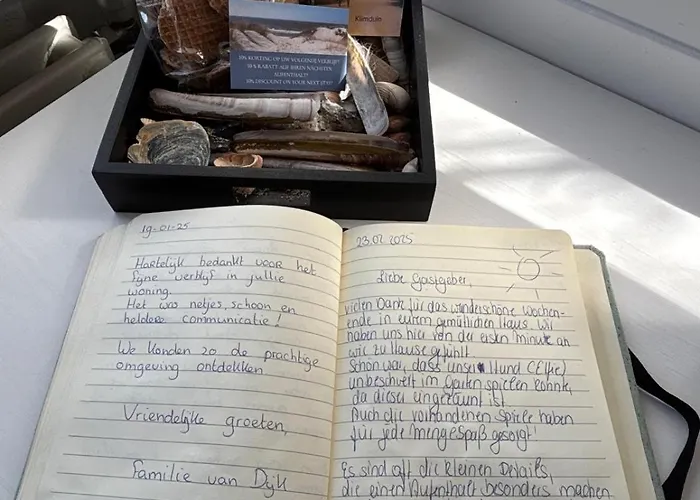 Klimduin
10% KORTING OP UW VOLGENDE VERBLIJF!
10% RABATT AUF IHREN NÄCHSTEN
AUFENTHALT!
10% DISCOUNT ON YOUR NEXT STAY!
19-01-25
Hartelijk bedankt voor het
fijne verblijf in jullie
woning.
Het was netjes, schoon en
heldere communicatie!
We konden zo de prachtige
omgeving ontdekken
Vriendelijke groeten,
Familie van Dijk
23.02.2025
Liebe Gastgeber,
vielen Dank für das wunderschöne Wochen-
ende in eurem gemütlichen Haus. Wir
haben uns hier von der ersten Minute an
wie zu Hause gefühlt.
Schön war, dass unser Hund (Elfie)
unbeschwert im Garten spielen konnte,
da dieser umgezäunt ist.
Auch die vorhandenen Spiele haben
für jede Menge Spaß gesorgt!
Es sind oft die kleinen Details,
die einen Aufenthalt besonders machen